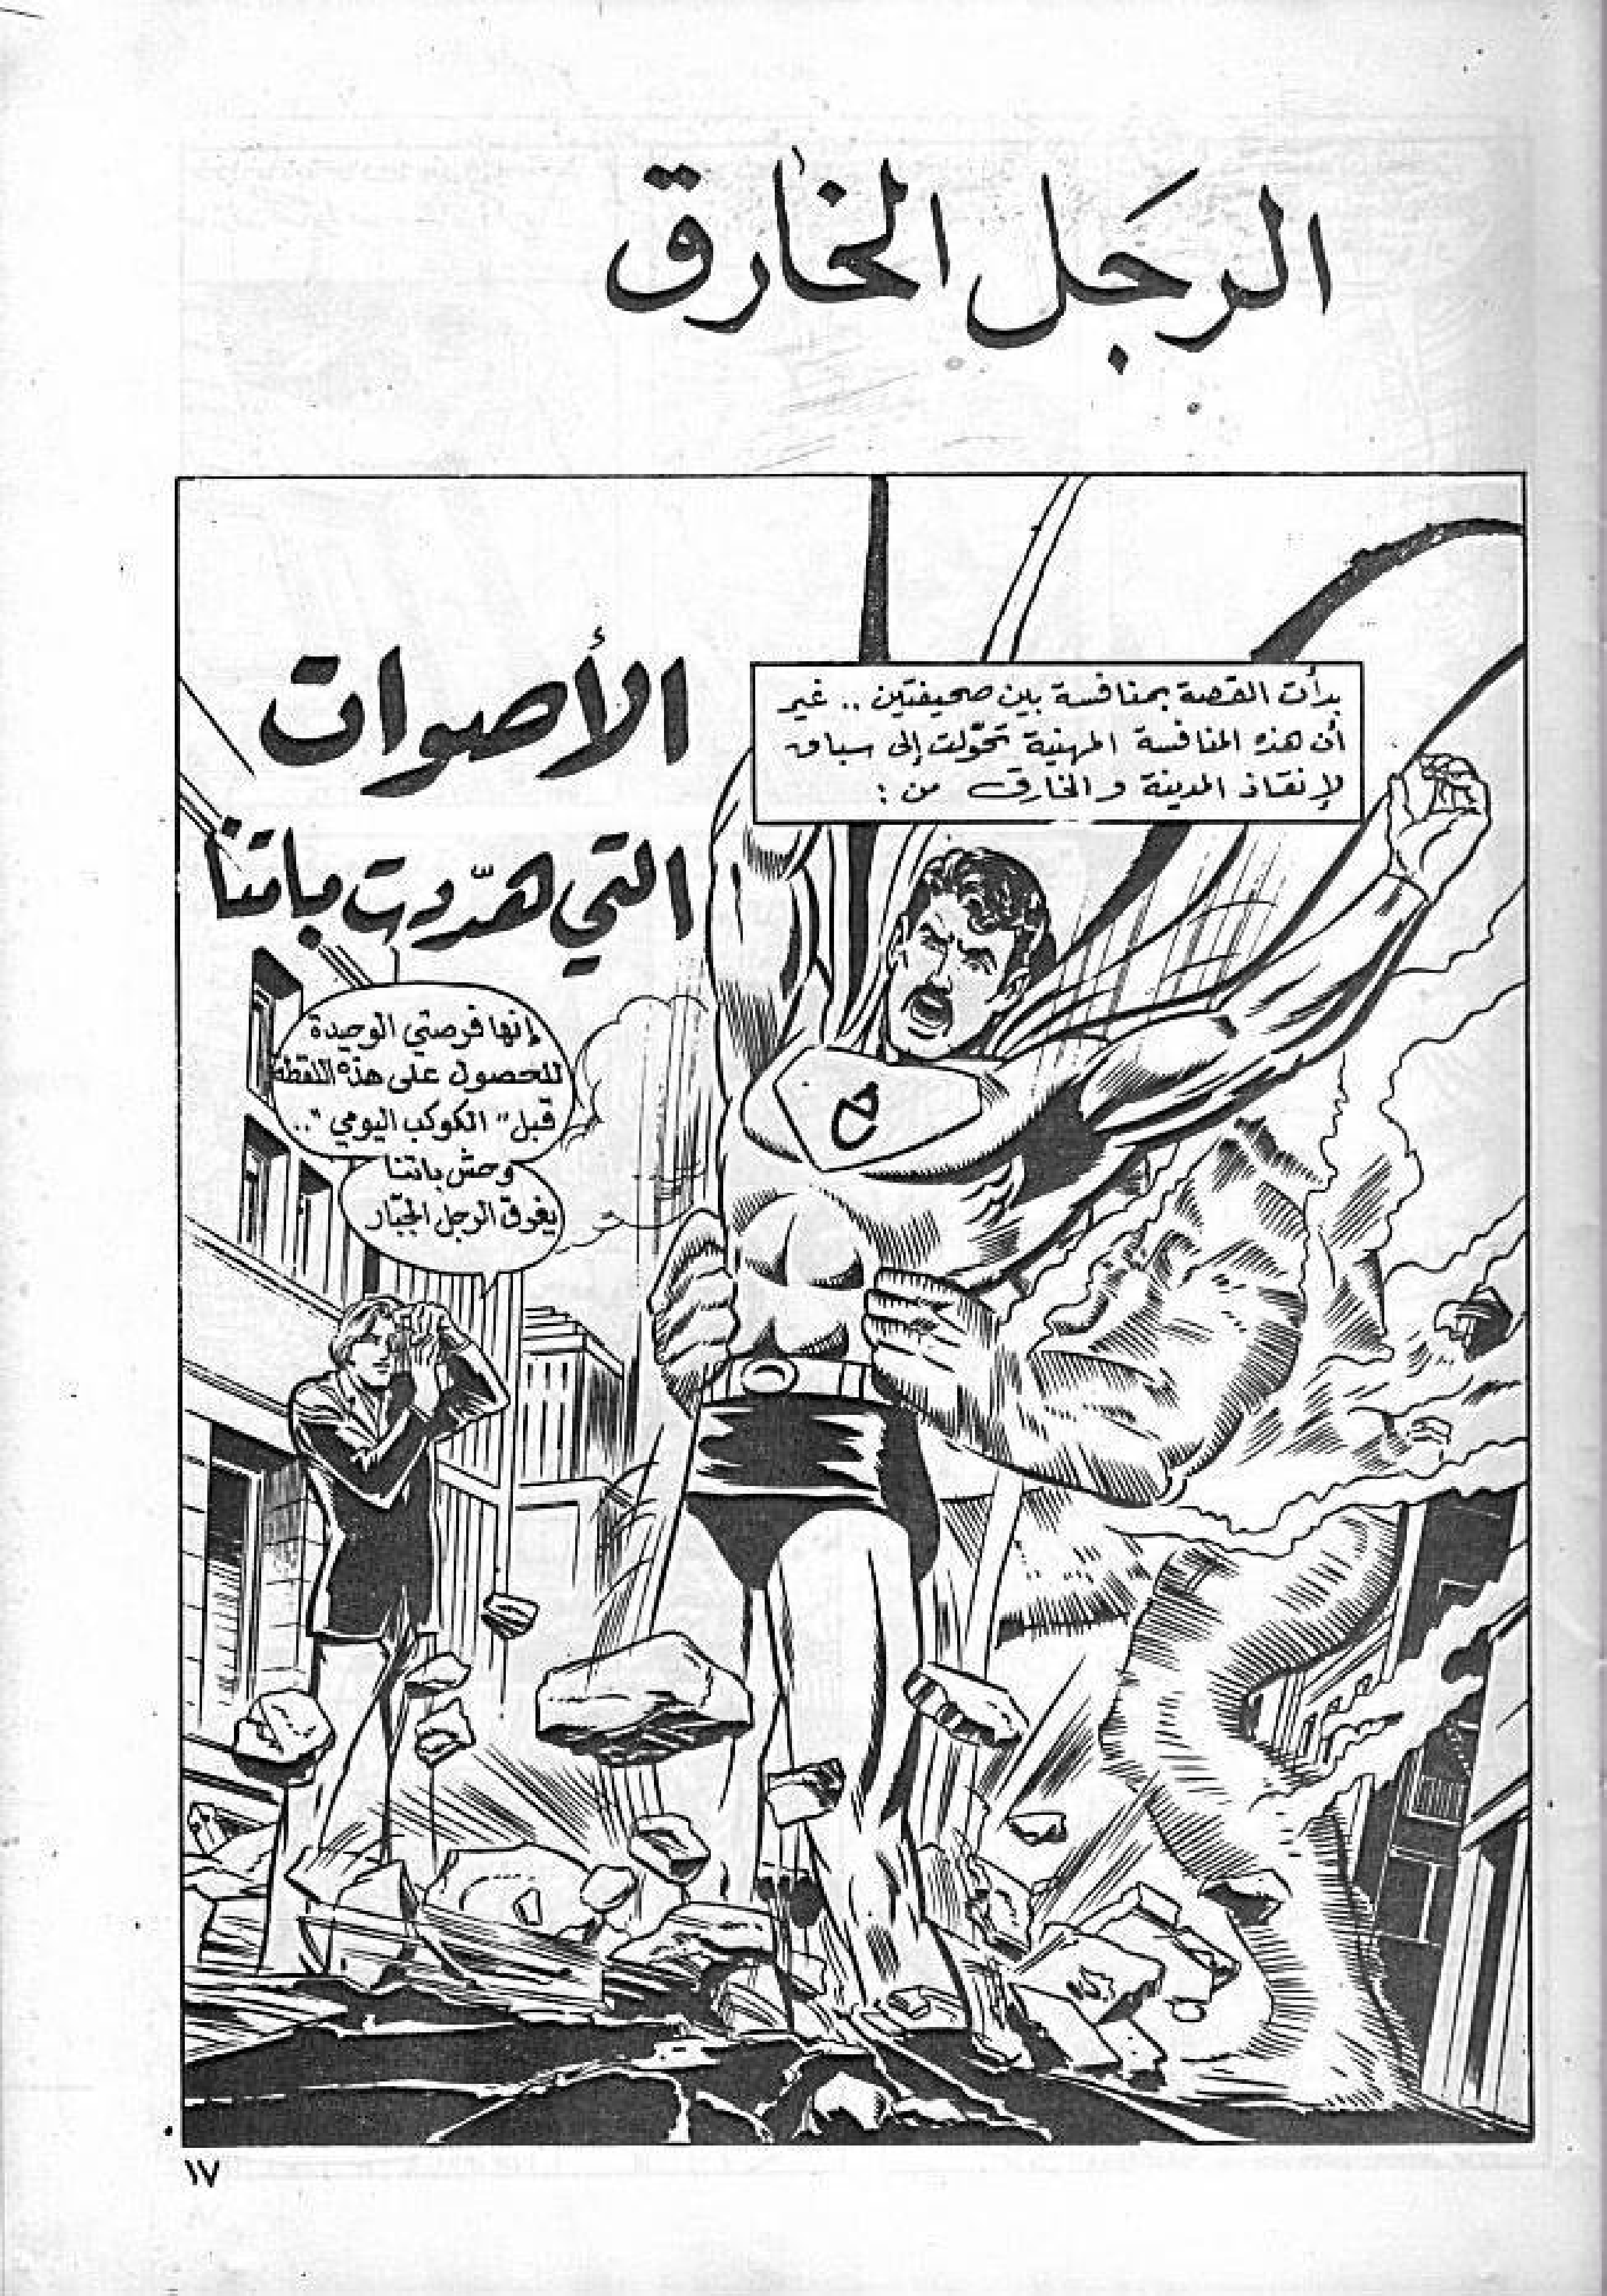 الرجل الخارق
بدأت القصة بمنافسة بين صحيفتين .. غير
أن هذه المنافسة المهنية تحوّلت إلى سباق
لإنقاذ المدينة والخارق من :
الأصوات
التي هدّدت باتنا
إنها فرصتي الوحيدة
للحصول على هذه اللقطة
قبل "الكوكب اليومي"..
وحش باتنا
يغرق الرجل الجبّار
١٧